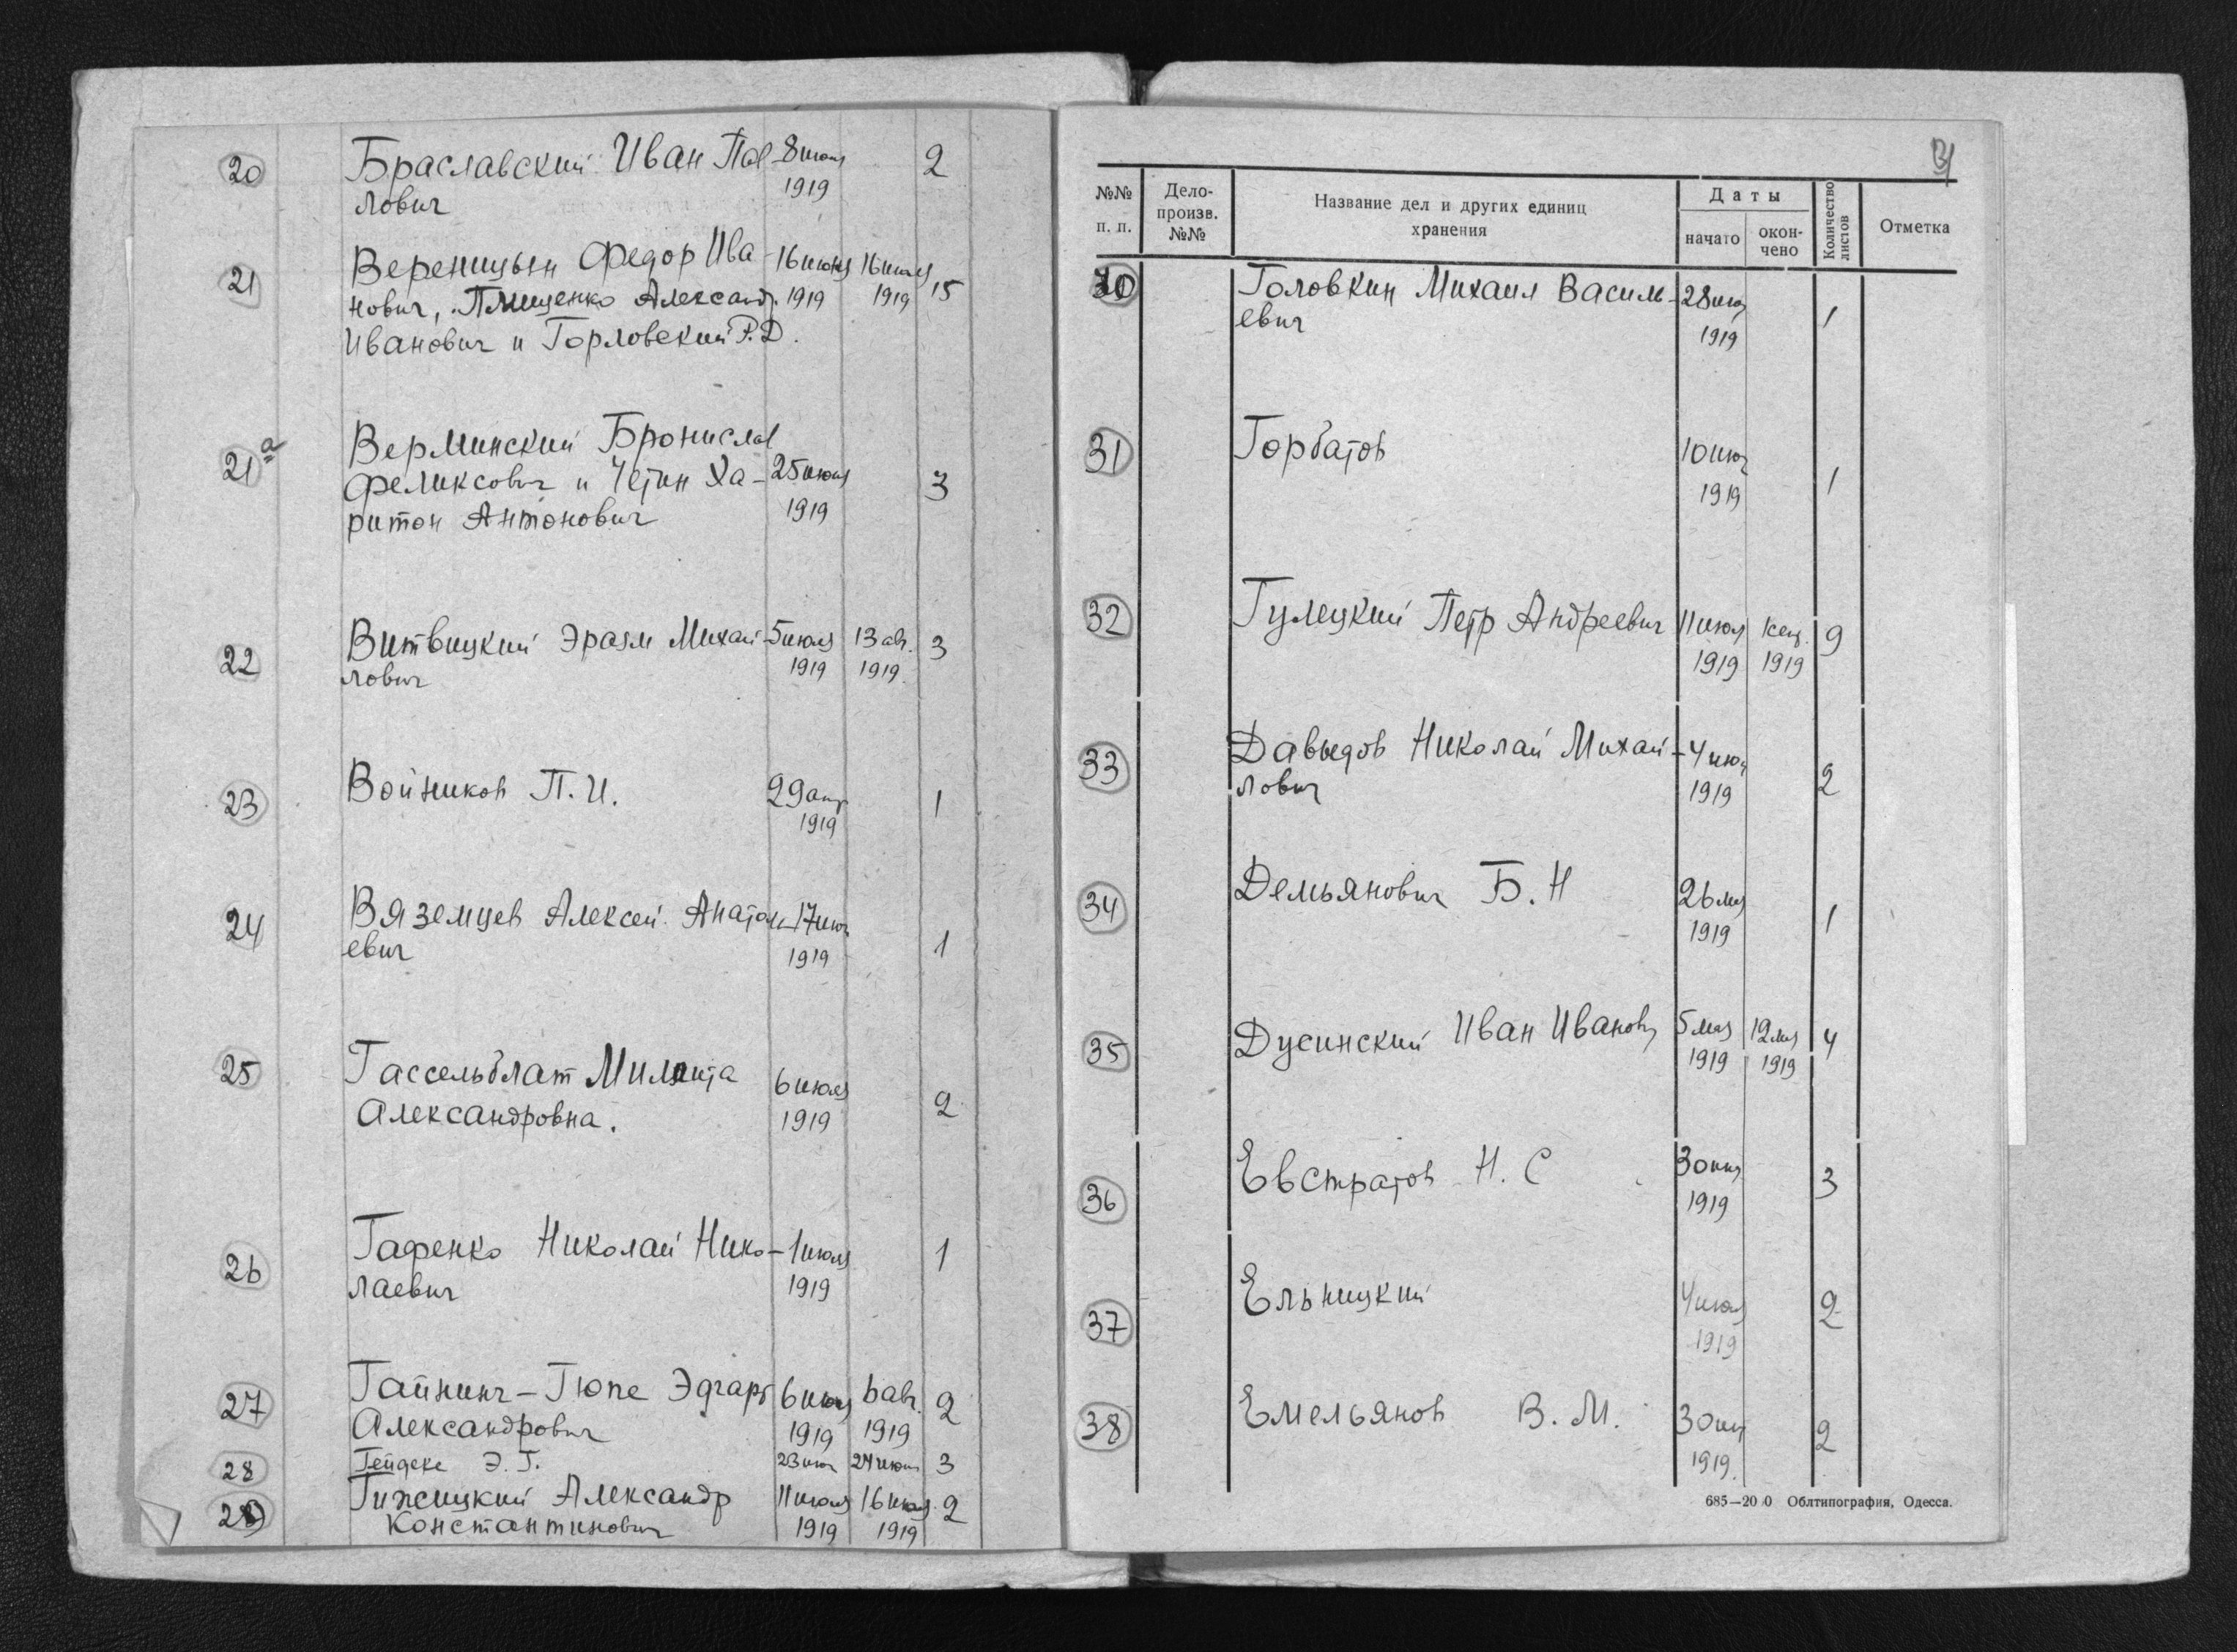 20 Браславский Иван Пав- 8 июля 2
лович 1919
21 Вереницын Федор Ива- 16 июня 16 июля 15
нович, Пищенко Александр 1919 1919
Иванович и Горловский Р.Д.
21а Верминский Бронислав
Феликсович и Четин Ха- 25 июня 3
ритон Антонович 1919
22 Витвицкий Эразм Михай- 5 июля 13 авг. 3
лович 1919 1919.
23 Войников П.И. 29 апр 1
1919
24 Вяземцев Алексей Анатоль- 17 июн 1
евич 1919
25 Гассельблат Милита 6 июля 2
Александровна. 1919
26 Гафенко Николай Нико- 1 июля 1
лаевич 1919
27 Гайнинг-Гюпе Эдгард 6 июля 6 авг. 2
Александрович 1919 1919
28 Гейдеке Э.Г. 23 июн 24 июня 3
29 Гижицкий Александр 11 июля 16 июля 2
Константинович 1919 1919
3
№№ п. п. Дело-произв. №№ Название дел и других единиц хранения Даты начато окончено Количество листов Отметка
30 Головкин Михаил Василь- 28 июн 1
евич 1919
31 Горбатов 10 июн 1
1919
32 Гулецкий Петр Андреевич 11 июля 1 сен. 9
1919 1919
33 Давыдов Николай Михай- 4 июн 2
лович 1919
34 Демьянович Б.Н 26 мая 1
1919
35 Дусинский Иван Иванович 5 мая 12 мая 4
1919 1919
36 Евстратов Н.С 3
1919
37 Ельницкий 4 июля 2
1919
38 Емельянов В.М. 2
1919.
685—20 0 Облтипография, Одесса.